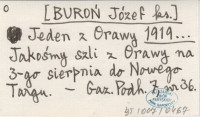 [BUROŃ Józef ks.]
Jeden z Orawy 1919...
Jakośmy szli z Orawy na
3-go sierpnia do Nowego
Targu. — Gaz. Podh. 7, nr 36.